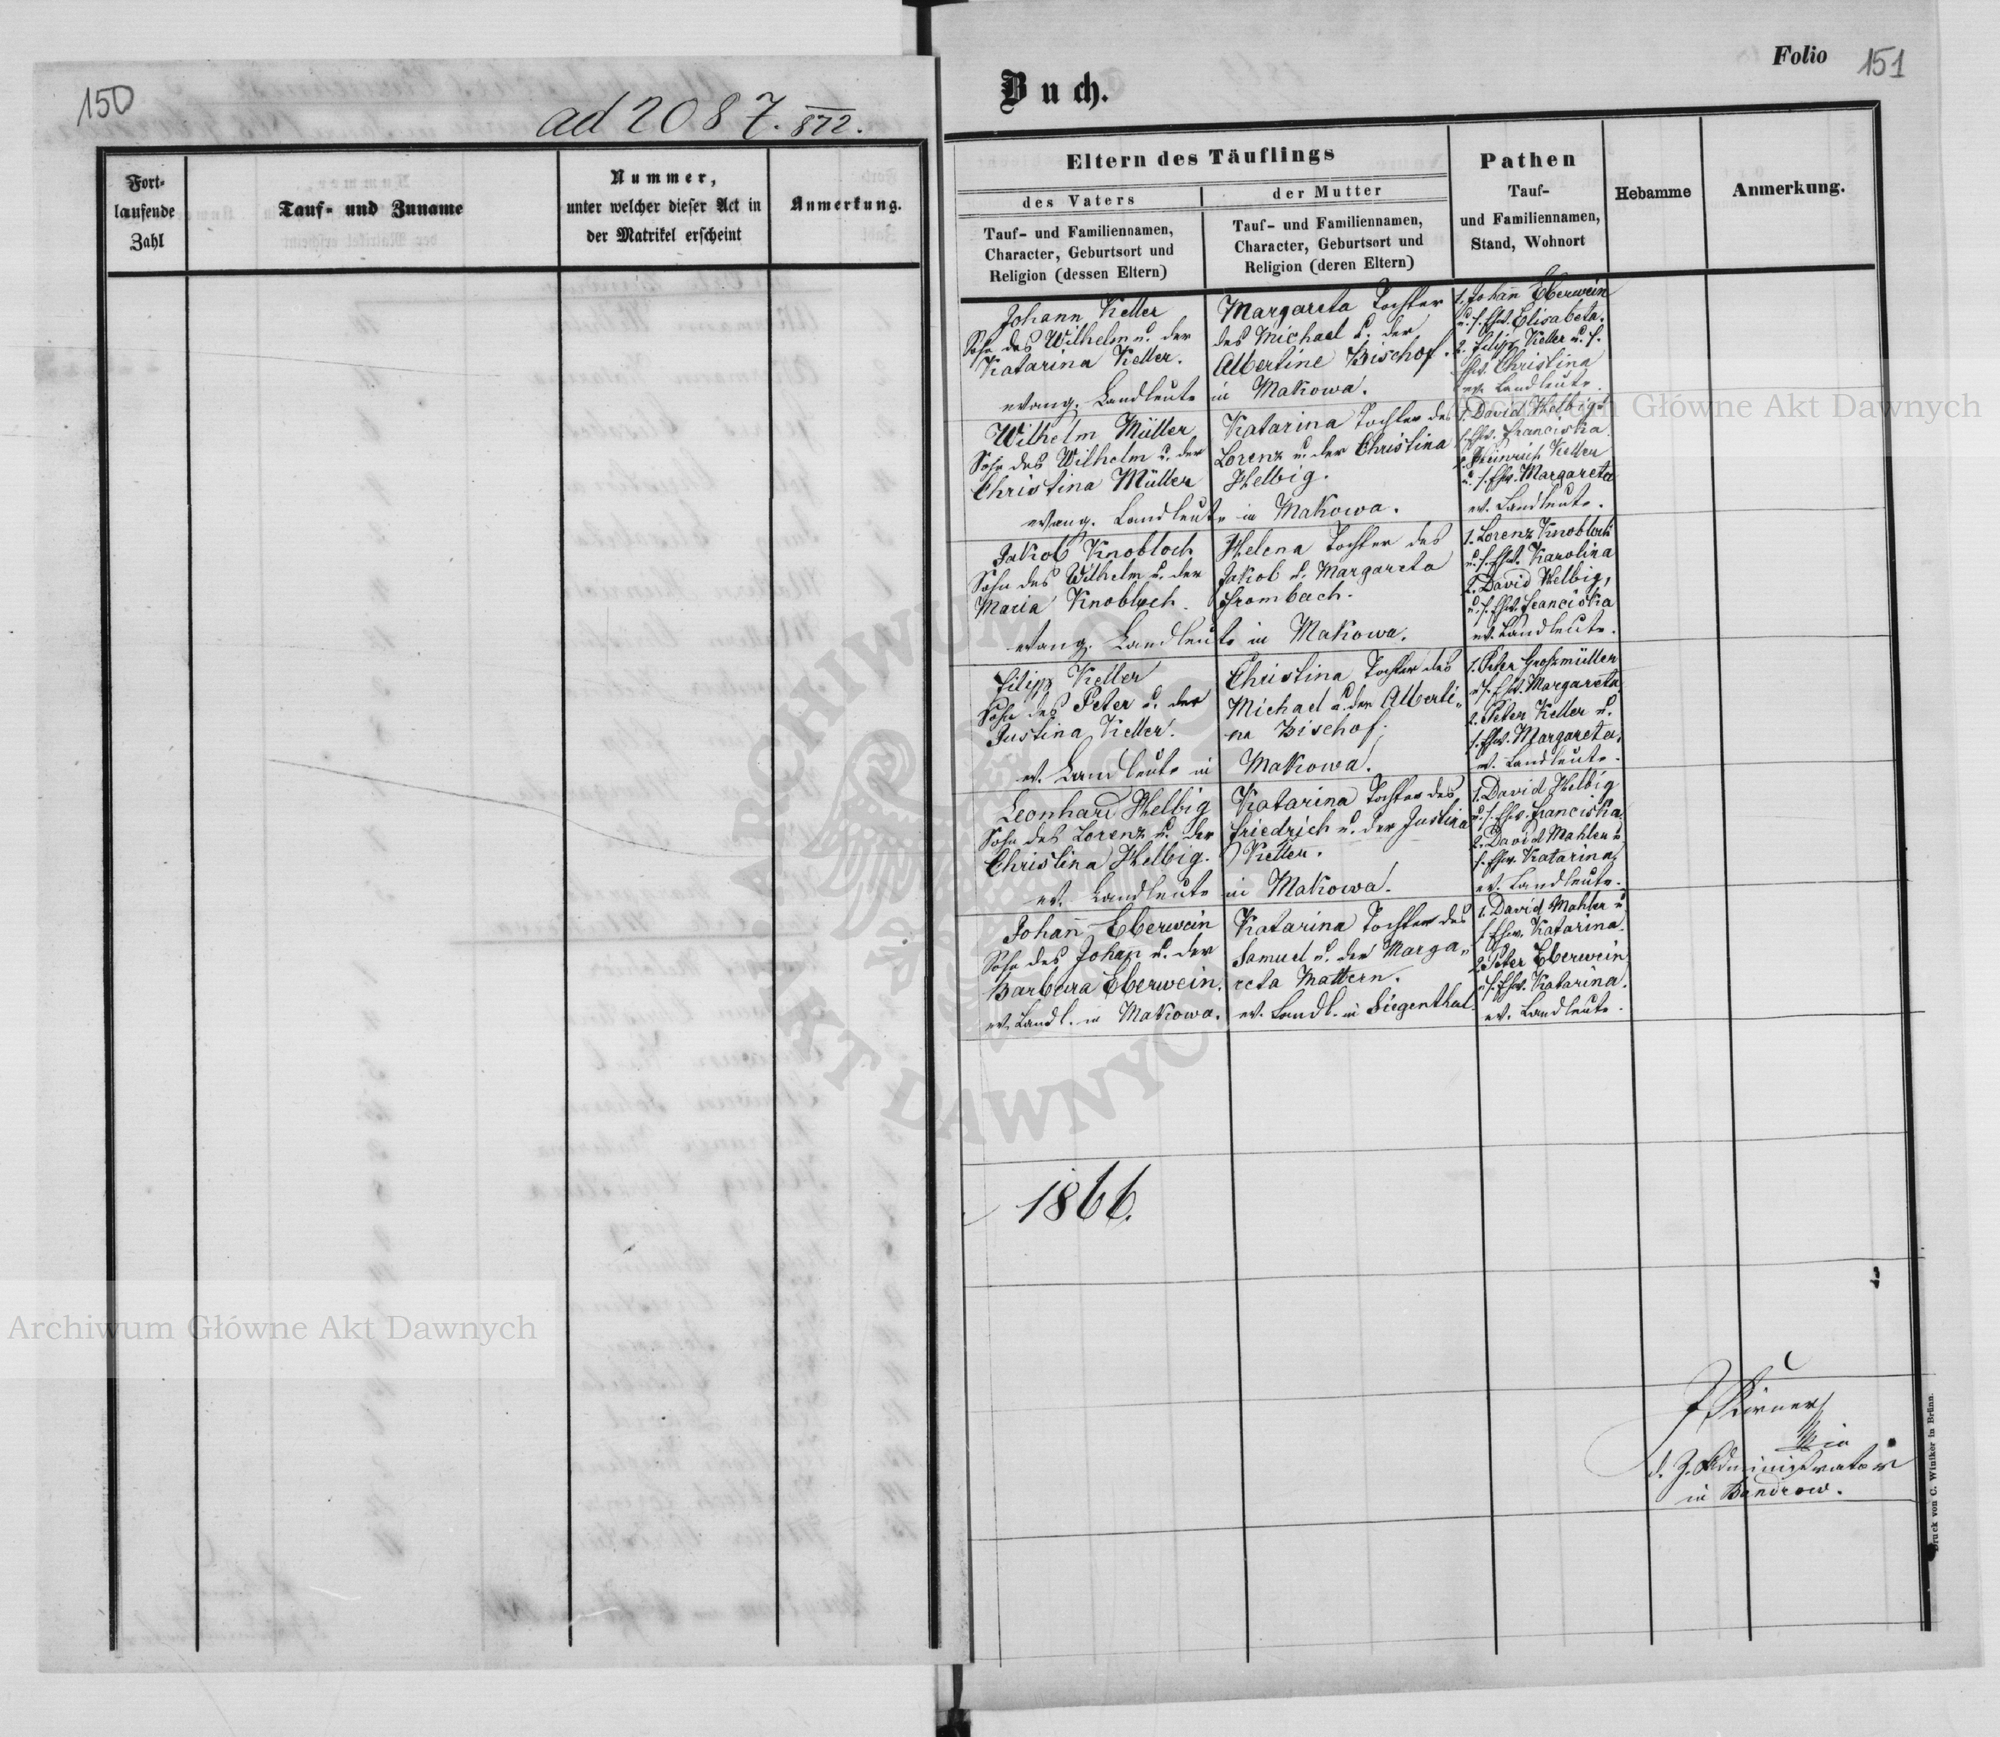 150
ad 2087. 872.
Fort-
laufende
Zahl
Tauf- und Zuname
Nummer,
unter welcher dieser Act in
der Matrikel erscheint
Anmerkung.
Folio 151
Buch.
Eltern des Täuflings
des Vaters
Tauf- und Familiennamen,
Character, Geburtsort und
Religion (dessen Eltern)
der Mutter
Tauf- und Familiennamen,
Character, Geburtsort und
Religion (deren Eltern)
Pathen
Tauf-
und Familiennamen,
Stand, Wohnort
Hebamme
Anmerkung.
Johann Keller
Sohn des Wilhelm u. der
Katarina Keller.
Margareta Tochter
des Michael u. der
Albertine Bischof.
evang. Landleute in Makowa.
1. Johann Eberwein
u. s. Ehw. Elisabeta.
2. Filipp Keller u. s.
Ehw. Christina
ev. Landleute.
Wilhelm Müller
Sohn des Wilhelm u. der
Christina Müller
Katarina Tochter des
Lorenz u. der Christina
Helbig.
evang. Landleute in Makowa.
1. David Helbig u.
s. Ehw. Franciska
2. Heinrich Keller
u. s. Ehw. Margareta
ev. Landleute.
Jakob Knobloch
Sohn des Wilhelm u. der
Maria Knobloch.
Helena Tochter des
Jakob u. Margareta
Frombach.
evang. Landleute in Makowa.
1. Lorenz Knobloch
u. s. Ehw. Karolina
2. David Helbig,
u. s. Ehw. Franciska
ev. Landleute.
Filipp Keller
Sohn des Peter u. der
Justina Keller.
Christina Tochter des
Michael u. der Alberti„
na Bischof.
ev. Landleute in Makowa.
1. Peter Großmüller
u. s. Ehw. Margareta.
2. Peter Keller u.
s. Ehw. Margareta,
ev. Landleute.
Leonhard Helbig
Sohn des Lorenz u. der
Christina Helbig.
Katarina Tochter des
Friedrich u. der Justina
Keller.
ev. Landleute in Makowa.
1. David Helbig
u. s. Ehw. Franciska
2. David Mahler u
s. Ehw. Katarina,
ev. Landleute.
Johann Eberwein
Sohn des Johann u. der
Barbara Eberwein.
ev. Landl. in Makowa.
Katarina Tochter des
Samuel u. der Marga„
reta Mattern.
ev. Landl. in Siegenthal.
1. David Mahler u
s. Ehw. Katarina.
2. Peter Eberwein
u. s. Ehw. Katarina.
ev. Landleute.
1866.
d. Z. Administrator
in Bandrow.
Druck von C. Winiker in Brünn.
Archiwum Główne Akt Dawnych
Archiwum Główne Akt Dawnych
ARCHIWUM GŁÓWNE AKT DAWNYCH